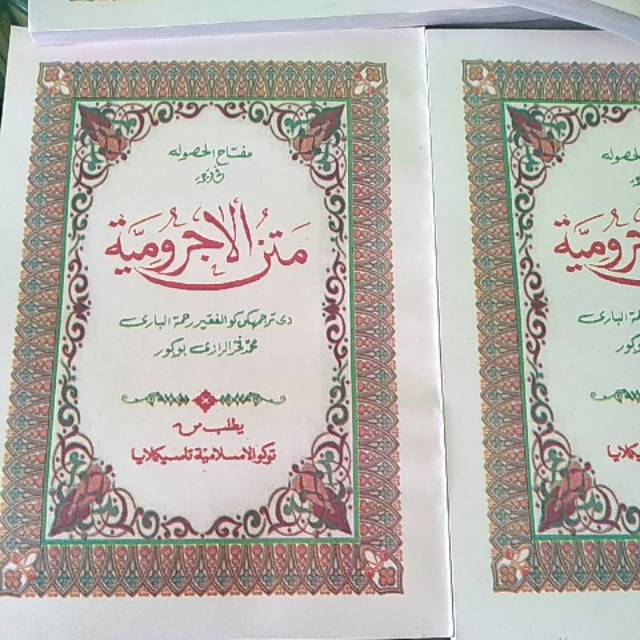 مفتاح الحصوله
متن الاجرومية
دى ترجمهكن كو الفقير رحمة البارى
محمد فخر الرازى بوكور
يطلب من
توكو الاسلامية تاسيكملايا
الحصوله
رومية
مة البارى
كور
يكملايا